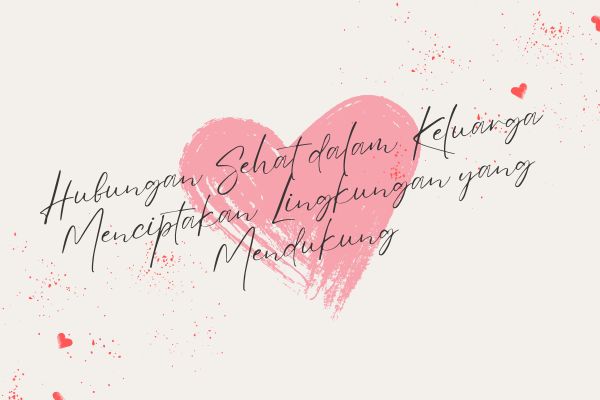 Hubungan Sehat dalam Keluarga
Menciptakan Lingkungan yang
Mendukung